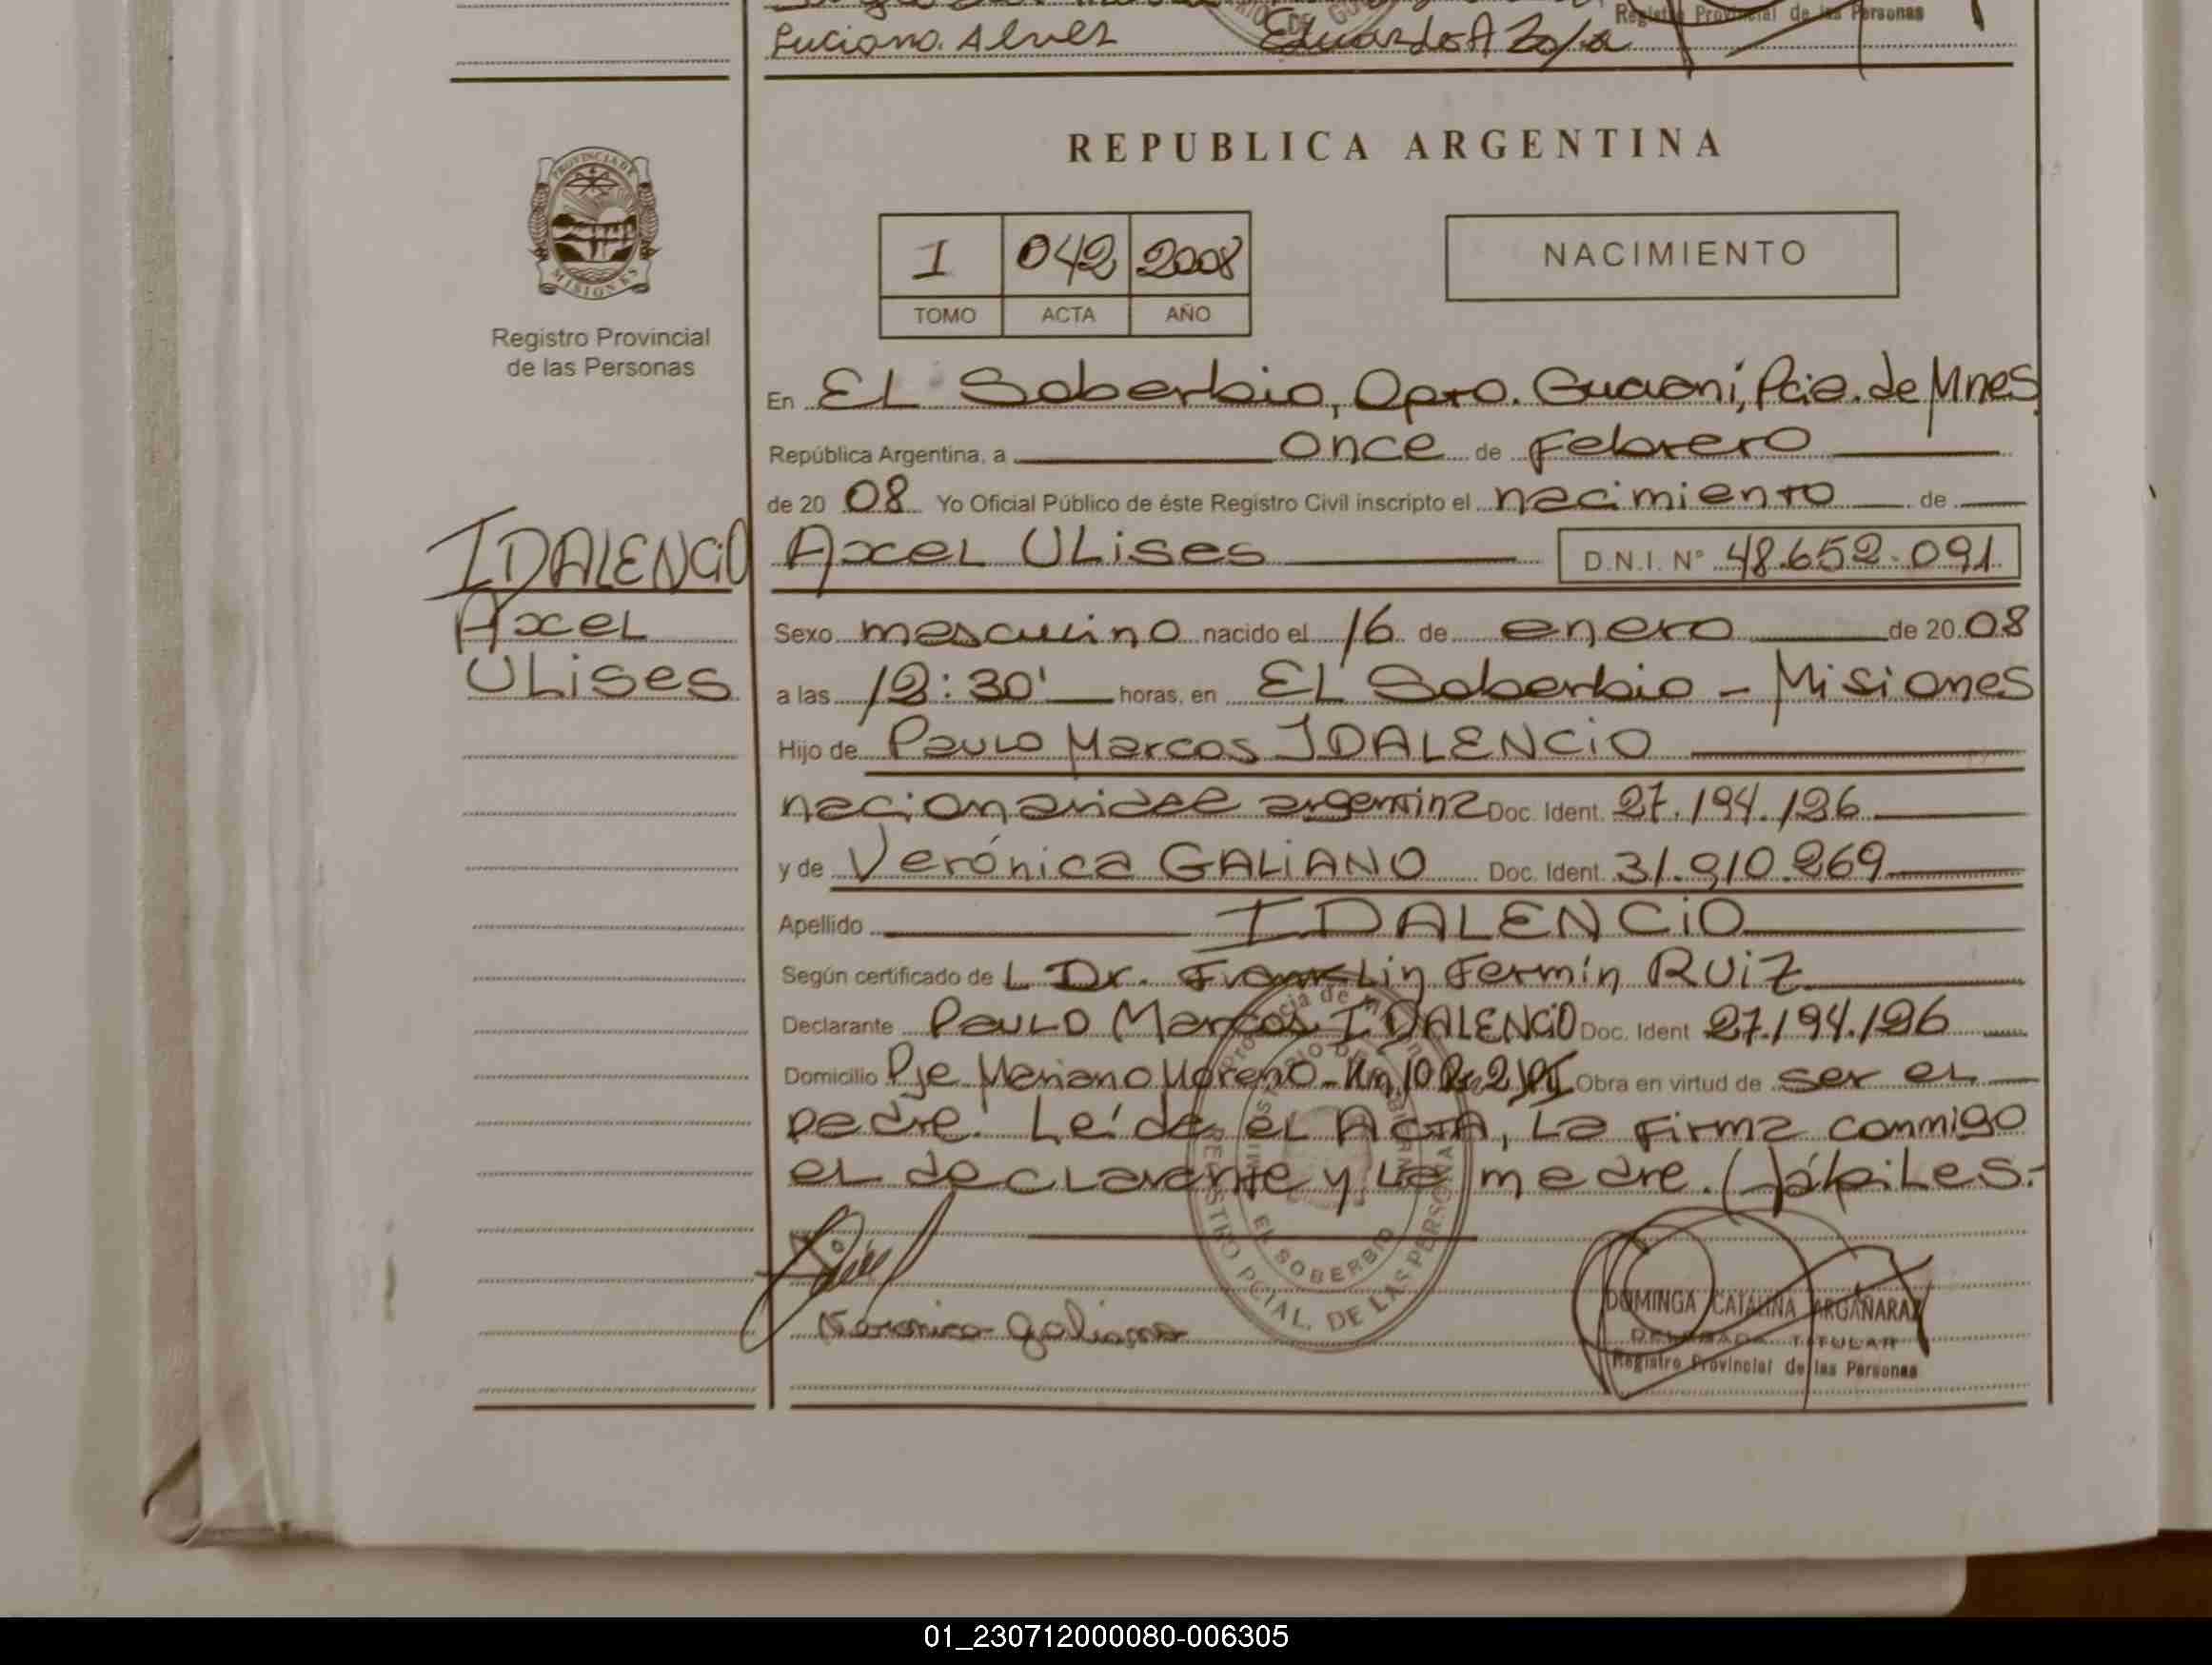 Luciano Alvez Eduardo A Zo/a
Registro Provincial de las Personas
PROVINCIA DE
MISIONES
Registro Provincial
de las Personas
REPUBLICA ARGENTINA
I 042 2008
TOMO ACTA AÑO
NACIMIENTO
En EL Soberbio, Dpto. Guaraní, Pcia. de Mnes
República Argentina, a once de Febrero
de 20 08 Yo Oficial Público de éste Registro Civil inscripto el nacimiento de
IDALENCiO
Axel
ULises
Axel ULises D.N.I. Nº 48.652.091
Sexo masculino nacido el 16 de enero de 20 08
a las 12:30' horas, en EL Soberbio - Misiones
Hijo de Paulo Marcos IDALENCiO
nacionalidad argentina Doc. Ident. 27.194.126
y de Verónica GALiANO Doc. Ident. 31.910.269
Apellido IDALENCiO
Según certificado de L Dr. Franklin Fermín RUiZ
Declarante PauLo Marcos IDALENCiO Doc. Ident 27.194.126
Domicilio Pje Mariano Moreno - Km 10 Obra en virtud de ser el
padre. Leída el ACTA, La Firma conmigo
el declarante y la madre. Hábiles.-
Veronica Galiano
Provincia de
REGISTRO PCIAL. DE LAS PERSONAS
EL SOBERBIO
DOMINGA CATALINA ARGAÑARAZ
DELEGADA TITULAR
Registro Provincial de las Personas
01_230712000080-006305